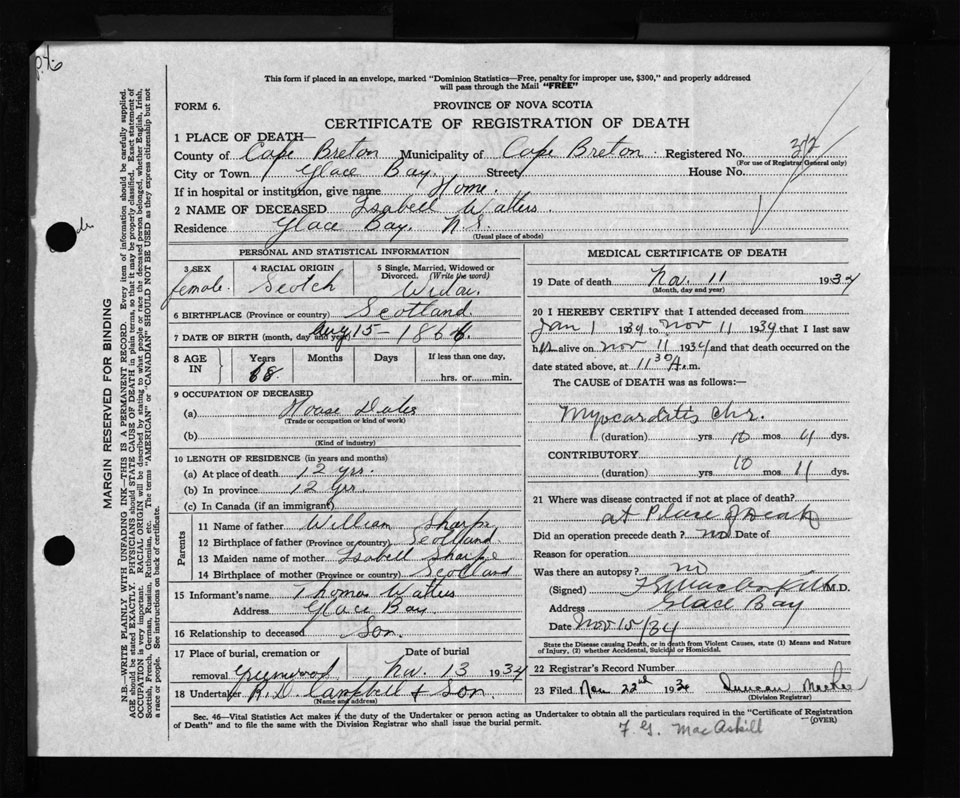 This form if placed in an envelope, marked "Dominion Statistics—Free, penalty for improper use, $300," and properly addressed
will pass through the Mail "FREE"
FORM 6.
PROVINCE OF NOVA SCOTIA
CERTIFICATE OF REGISTRATION OF DEATH
1 PLACE OF DEATH—
County of Cape Breton Municipality of Cape Breton Registered No. 372
(For use of Registrar General only)
City or Town Glace Bay. Street House No.
If in hospital or institution, give name Home.
2 NAME OF DECEASED Isabell Watters
Residence Glace Bay, N.S.
(Usual place of abode)
PERSONAL AND STATISTICAL INFORMATION
3 SEX
female.
4 RACIAL ORIGIN
Scotch
5 Single, Married, Widowed or
Divorced. (Write the word)
Widow.
6 BIRTHPLACE (Province or country) Scotland
7 DATE OF BIRTH (month, day and year) Aug 15 - 1866
8 AGE
IN
Years
68
Months
Days
If less than one day,
hrs. or min.
9 OCCUPATION OF DECEASED
(a) House Duties
(Trade or occupation or kind of work)
(b)
(Kind of industry)
10 LENGTH OF RESIDENCE (in years and months)
(a) At place of death 12 yrs.
(b) In province 12 yrs.
(c) In Canada (if an immigrant)
Parents
11 Name of father William Sharpe
12 Birthplace of father (Province or country) Scotland
13 Maiden name of mother Isabell Sharpe
14 Birthplace of mother (Province or country) Scotland
15 Informant's name Thomas Watters
Address Glace Bay
16 Relationship to deceased Son.
17 Place of burial, cremation or
removal Greenwood
Date of burial
Nov. 13 1934
18 Undertaker R. D. Campbell & Son.
(Name and address)
MEDICAL CERTIFICATE OF DEATH
19 Date of death Nov. 11 1934
(Month, day and year)
20 I HEREBY CERTIFY that I attended deceased from
Jan 1 1934 to Nov 11 1934 that I last saw
her alive on Nov 11 1934 and that death occurred on the
date stated above, at 11 30 A.m.
The CAUSE OF DEATH was as follows:—
Myocarditis chr.
(duration) yrs 10 mos 11 dys.
CONTRIBUTORY
(duration) yrs 10 mos 11 dys.
21 Where was disease contracted if not at place of death?
at Place of Death
Did an operation precede death? no Date of
Reason for operation
Was there an autopsy? no
(Signed) F G MacAskill M.D.
Address Glace Bay
Date Nov 15/34
State the Disease causing Death, or in death from Violent Causes, state (1) Means and Nature
of Injury, (2) whether Accidental, Suicidal or Homicidal.
22 Registrar's Record Number
23 Filed Nov 22nd 1934 Duncan
(Division Registrar)
Sec. 46—Vital Statistics Act makes it the duty of the Undertaker or person acting as Undertaker to obtain all the particulars required in the "Certificate of Registration
of Death" and to file the same with the Division Registrar who shall issue the burial permit.
(OVER)
F. G. MacAskill
MARGIN RESERVED FOR BINDING
N.B.—WRITE PLAINLY WITH UNFADING INK—THIS IS A PERMANENT RECORD. Every item of information should be carefully supplied.
AGE should be stated EXACTLY. PHYSICIANS should STATE CAUSE OF DEATH in plain terms, so that it may be properly classified. Exact statement of
OCCUPATION is very important. RACIAL ORIGIN will be described by stating to what people or race the deceased person belonged, whether English, Irish,
Scottish, French, German, Russian, Ruthenian, etc. The terms "AMERICAN" or "CANADIAN" SHOULD NOT BE USED as they express citizenship but not
a race or people. See instructions on back of certificate.